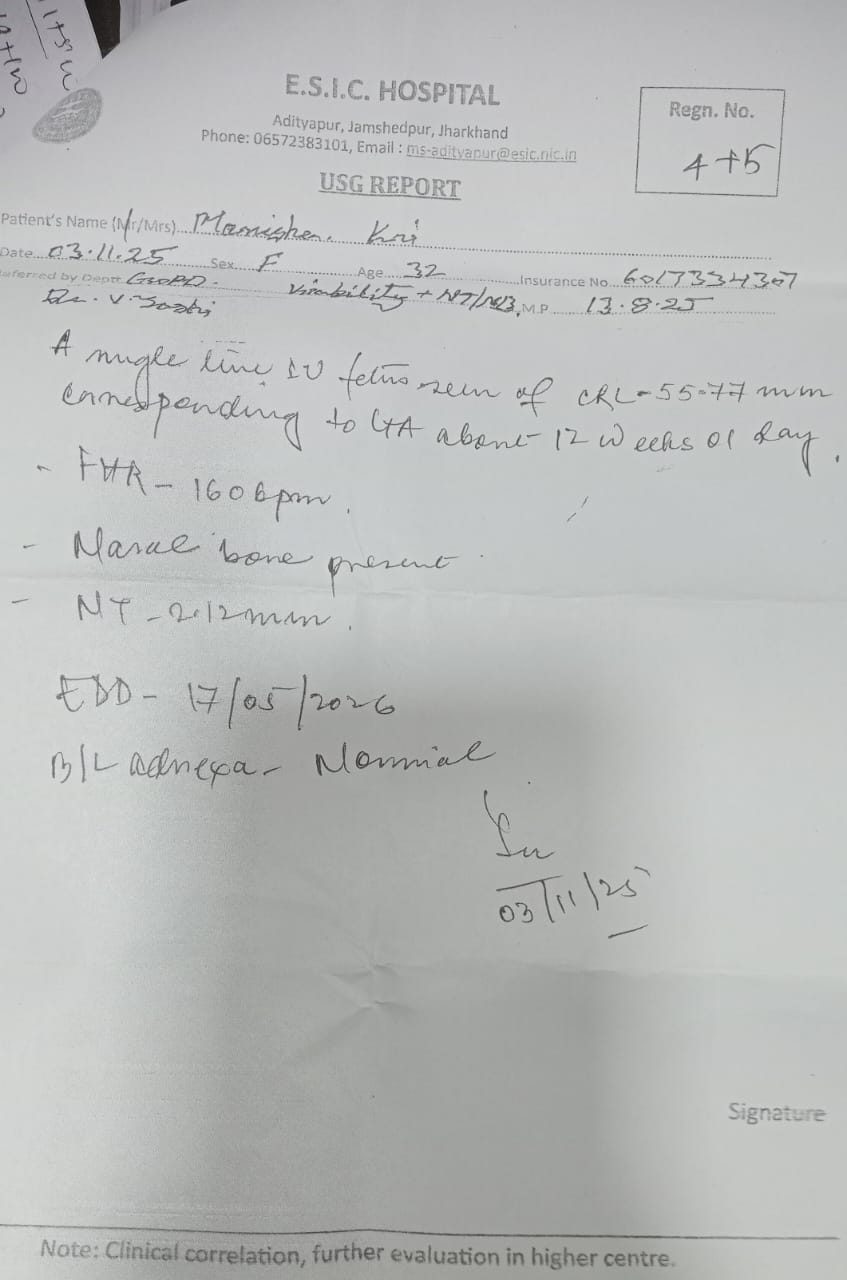 E.S.I.C. HOSPITAL
Adityapur, Jamshedpur, Jharkhand
Phone: 06572383101, Email : ms-adityapur@esic.nic.in
Regn. No.
4+5
USG REPORT
Patient's Name (Mr/Mrs)... Manisha. Kri
Date... 03.11.25 Sex... F Age... 32 Insurance No... 6017334307
Referred by Deptt GOPD. Viability + NT/NB L.M.P 13.8.25
Dr. V.
A single live IU fetus seen of CRL-55.77 mm
corresponding to GA about 12 weeks 01 day.
- FHR - 160 bpm.
- Nasal bone present.
- NT - 2.12mm.
EDD - 17/05/2026
B/L adnexa - Normal
03/11/25
Signature
Note: Clinical correlation, further evaluation in higher centre.